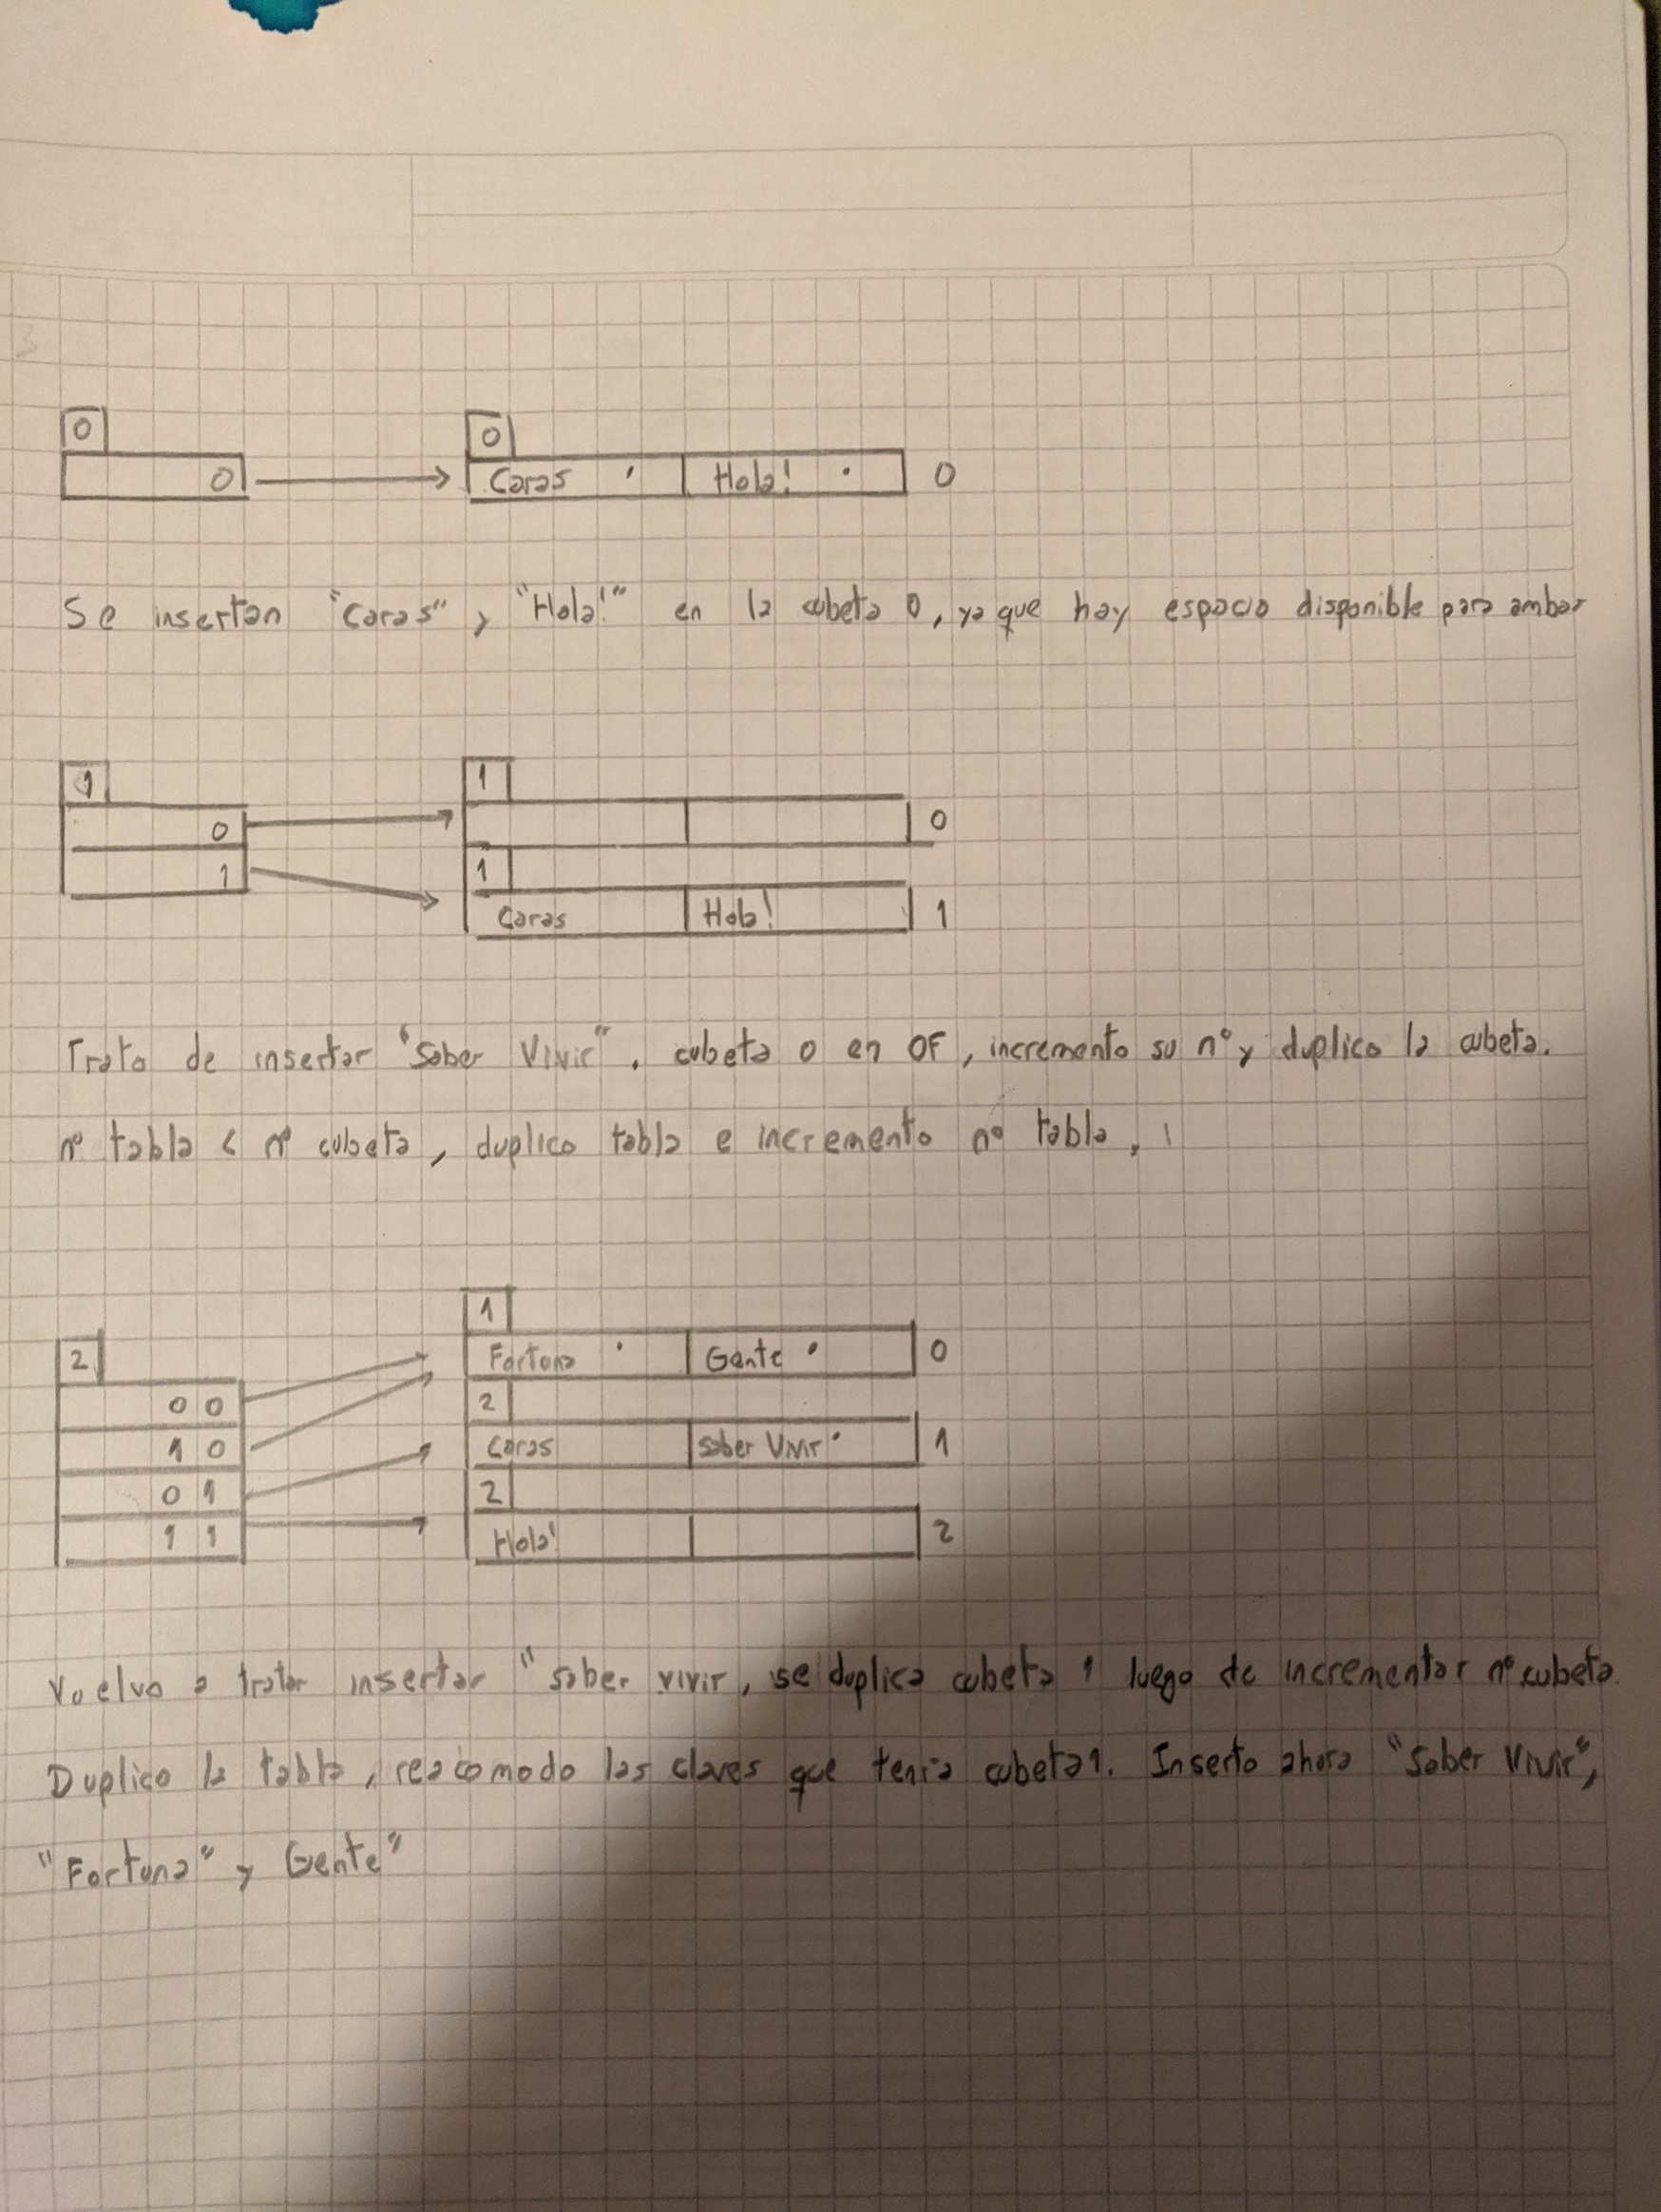 3
0
0
0
Caras
Hola!
0
Se insertan "Caras" y "Hola!" en la cubeta 0, ya que hay espacio disponible para ambas
1
1
0
0
1
1
Caras
Hola!
1
Trato de insertar "Saber Vivir". cubeta 0 en OF, incremento su nº y duplico la cubeta.
nº tabla < nº cubeta, duplico tabla e incremento nº tabla.
1
2
Fortuna
Gente
0
0 0
2
1 0
Caras
Saber Vivir
1
0 1
2
1 1
Hola!
2
Vuelvo a tratar insertar "saber vivir, se duplica cubeta 1 luego de incrementar nº cubeta.
Duplico la tabla, reacomodo las claves que tenía cubeta 1. Inserto ahora "Saber Vivir",
"Fortuna" y Gente"